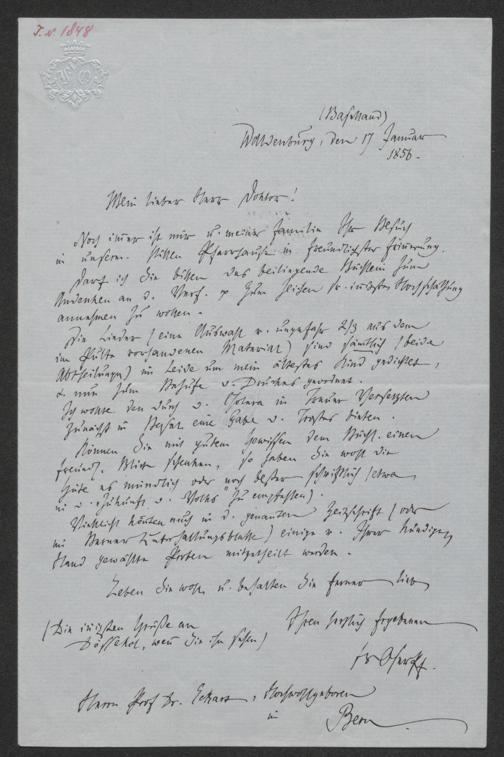 T. N. 1848
(Baselland)
Waldenburg, den 17 Januar
1856.
Mein lieber Herr Doktor!
Noch immer ist mir u. meiner Familie Ihr Besuch
in unserm stillen Pfarrhause in freundlichster Erinnerung.
Darf ich Sie bitten das beiliegende Büchlein zum
Andenken an d. Verf. zum Zeichen Hochschätzung
annehmen zu wollen.
Die Lieder (eine Auswahl v. ungefähr 2/3 aus dem
im Pulte vorhandenen Material) sind sämtlich (beide
Abtheilungen) im Leide um mein ältestes Kind gedichtet,
& nun zum Behufe d. Druckes geordnet.
Ich wollte den durch d. Cholera in Trauer Versetzten
zunächst in Basel eine Gabe d. Trostes bieten.
Können Sie mit gutem Gewissen dem Büchl. einen
freundl. Blick schenken, so haben Sie wohl die
Güte es mündlich oder noch besser schriftlich (etwa
in d. Volks zu empfehlen).
Vielleicht könnten auch in d. genannten Zeitschrift (oder
im Berner Unterhaltungsblatt) einige v. Ihrer kundigen
Hand gewählte Proben mitgetheilt werden.
Leben Sie wohl u. behalten Sie ferner lieb
(Die innigsten Grüße an Ihren herzlich ergebenen
wenn Sie ihn sehen)
Herrn Prof Dr. Eckardt, Hochwohlgeboren
in
Bern